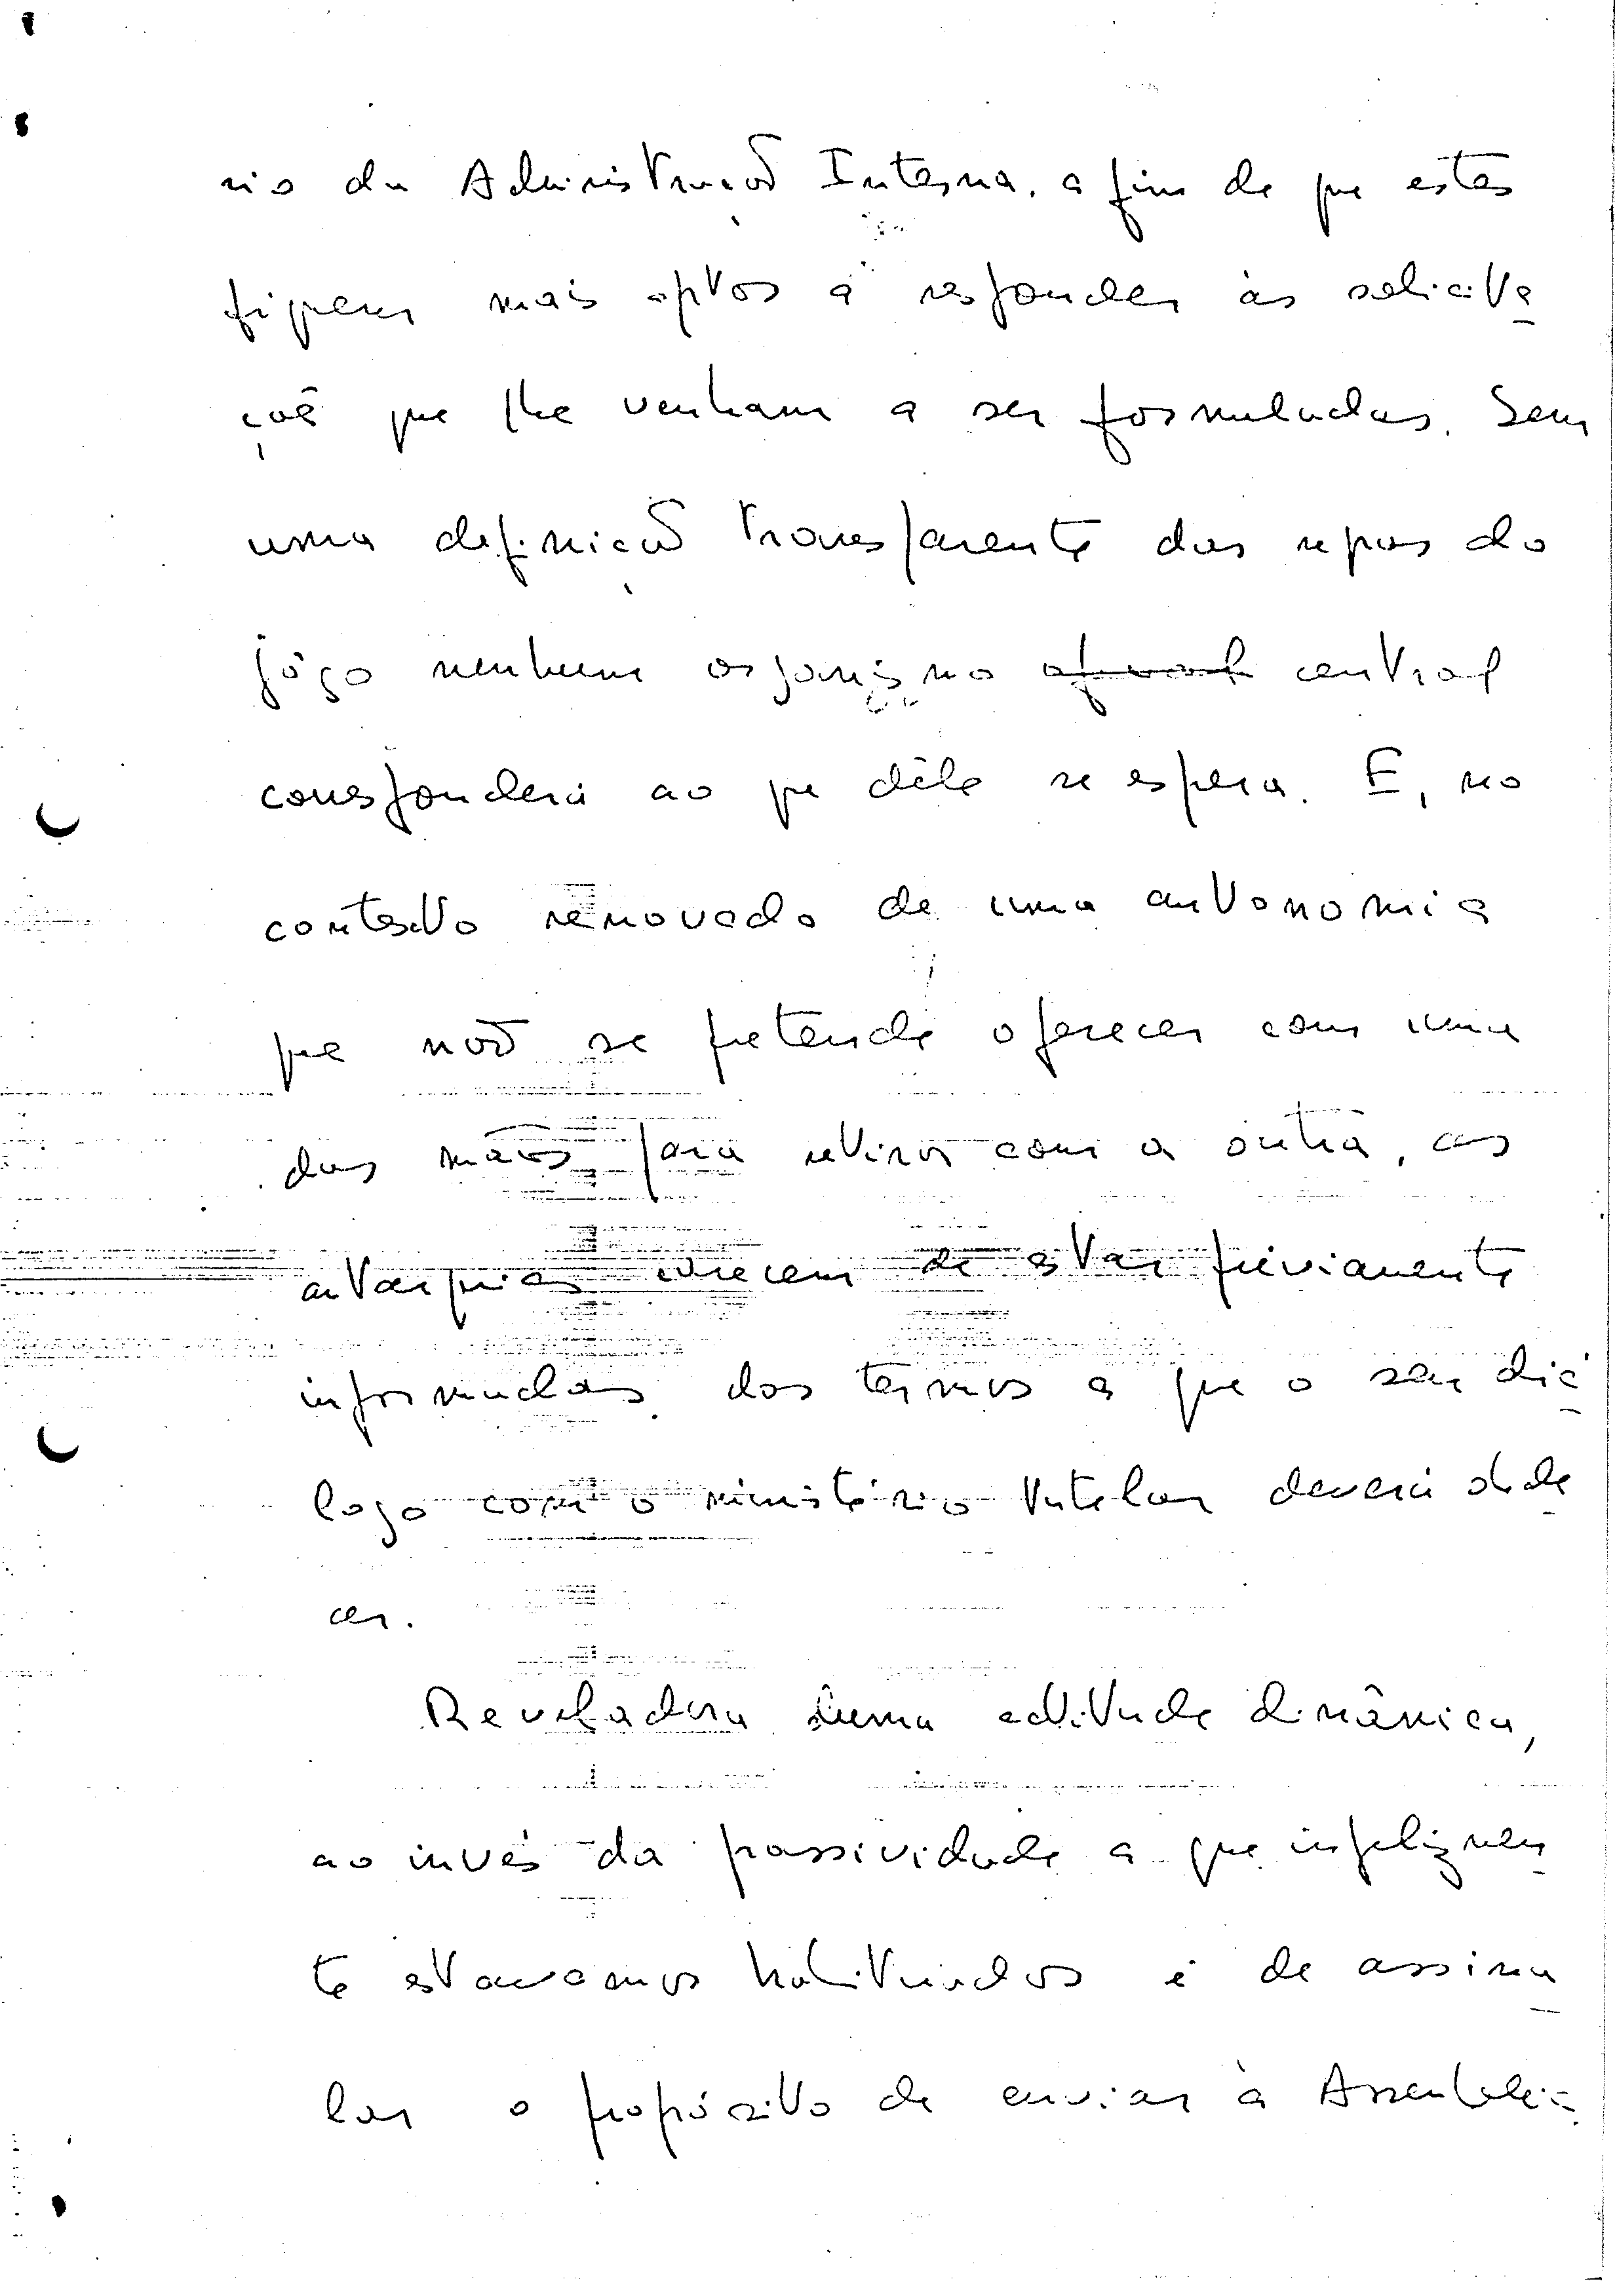 rio da Administração Interna, a fim de que estes
fiquem mais aptos a responder às solicita
ções que lhe venham a ser formuladas. Sem
uma definição transparente das regras do
jôgo nenhum organismo central
corresponderá ao que dêle se espera. E, no
contexto renovado de uma autonomia
que não se pretende oferecer com uma
das mãos para retirar com a outra, as
autarquias carecem de estar previamente
informadas dos termos a que o seu diá
logo com o ministério tutelar deverá obede
cer.
Reveladora duma actitude dinâmica,
ao invés da passividade a que infelizmen
te estavamos habituados é de assina
lar o propósito de enviar à Assembleia